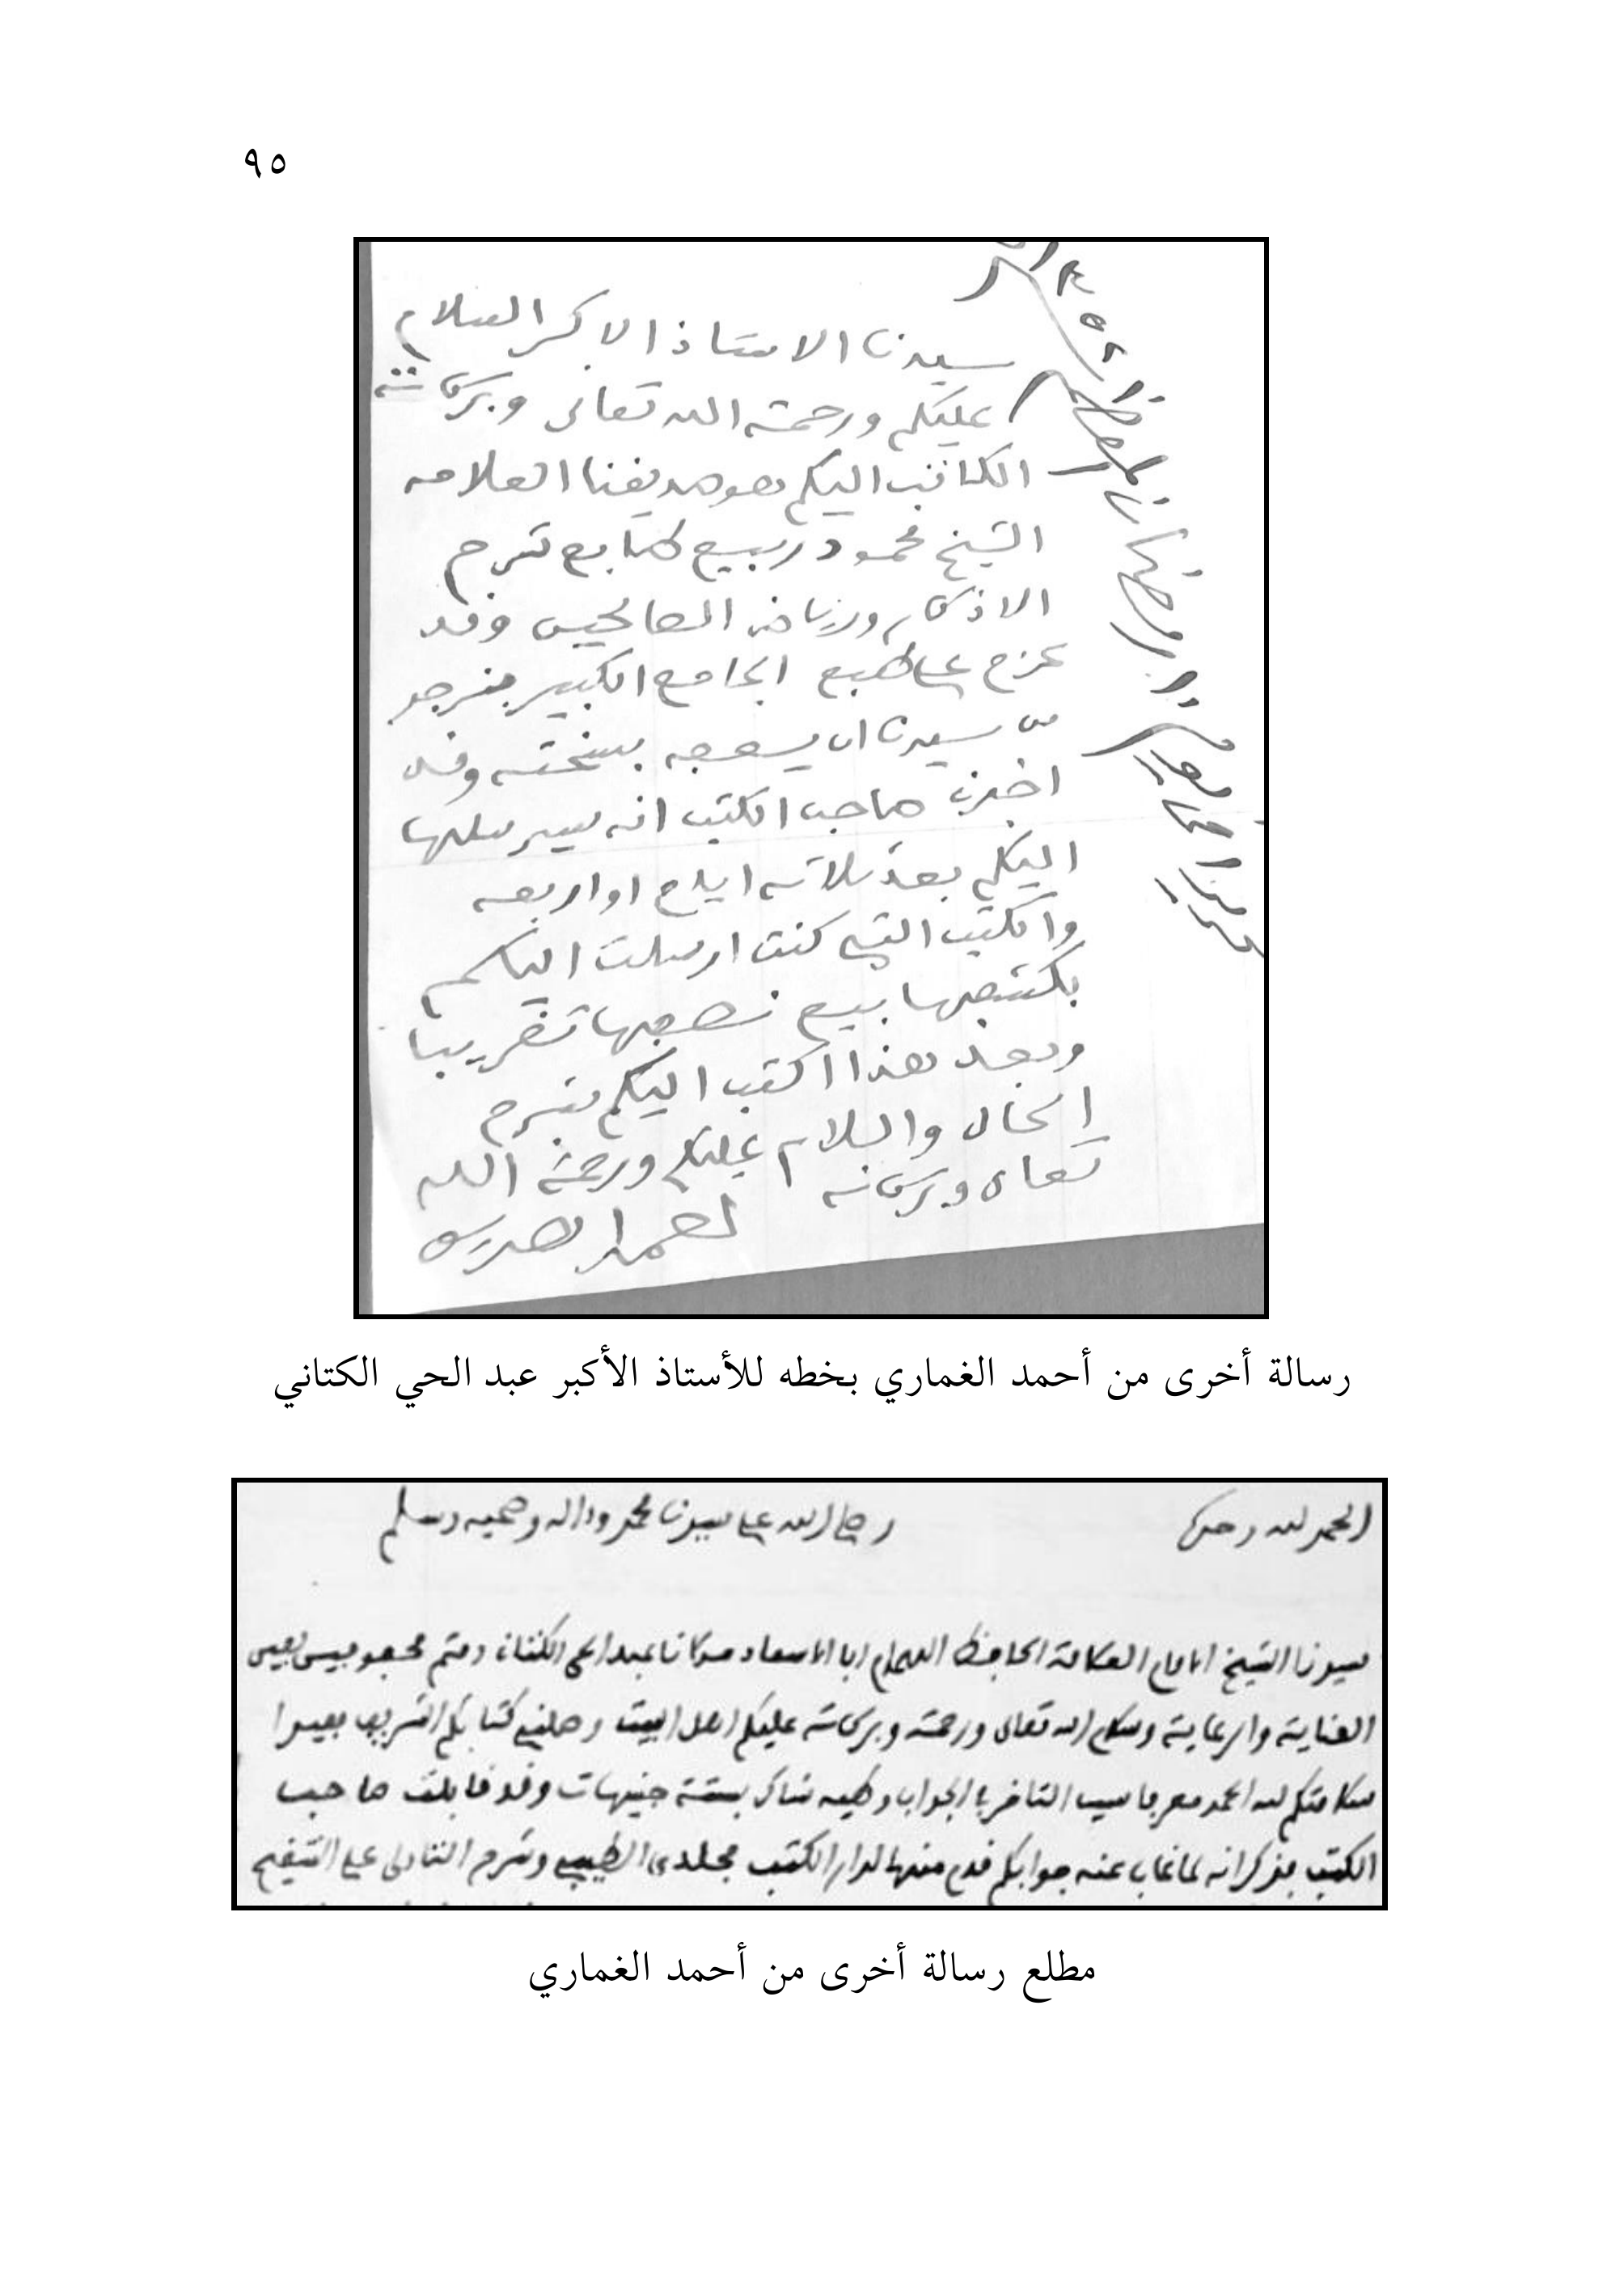 ٩٥
سيدنا الاستاذ الاكبر السلام
عليكم ورحمة الله تعالى وبركاته
الكاتب اليكم هو صديقنا العلامه
الشيخ محمود ربيع طابع شرح
الاذكار ورياض الصالحين وقد
عزم على طبع الجامع الكبير فنرجو
من سيدنا ان يسعفه بنسخته وقد
اخبرني صاحب الكتب انه سيرسلها
اليكم بعد ثلاثه ايام او اربعه
والكتب التي كنت ارسلت اليكم
بكشفها بيع نصفها تقريبا
وبعد هذا اكتب اليكم بشرح
الحال والسلام عليكم ورحمة الله
تعالى وبركاته
احمد الصديق
رسالة أخرى من أحمد الغماري بخطه للأستاذ الأكبر عبد الحي الكتاني
الحمد لله وحده
وصلى الله على سيدنا محمد وءاله وصحبه وسلم
سيدنا الشيخ الامام العلامة الحافظ الهمام ابا الاسعاد مولانا عبد الحي الكتاني دمتم محفوفين بعين
العناية والرعاية وسلام الله تعالى ورحمته وبركاته عليكم اهل البيت وصلني كتابكم الشريف مفيدا
سلامتكم لله الحمد معرفا سبب التاخر بالجواب وطيه شاك بستة جنيهات وقد قابلت صاحب
الكتب فذكر انه لما غاب عنه جوابكم قدم منها لدار الكتب مجلدي الطيبي وشرح الشاذلي على التنقيح
مطلع رسالة أخرى من أحمد الغماري